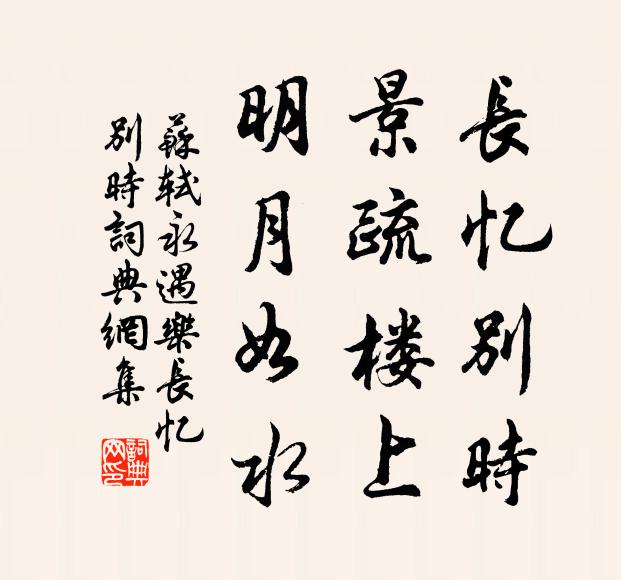 長忆别時
景疏楼上
明月如水
蘇軾永遇樂長忆
别時詞典網集
詞典網印